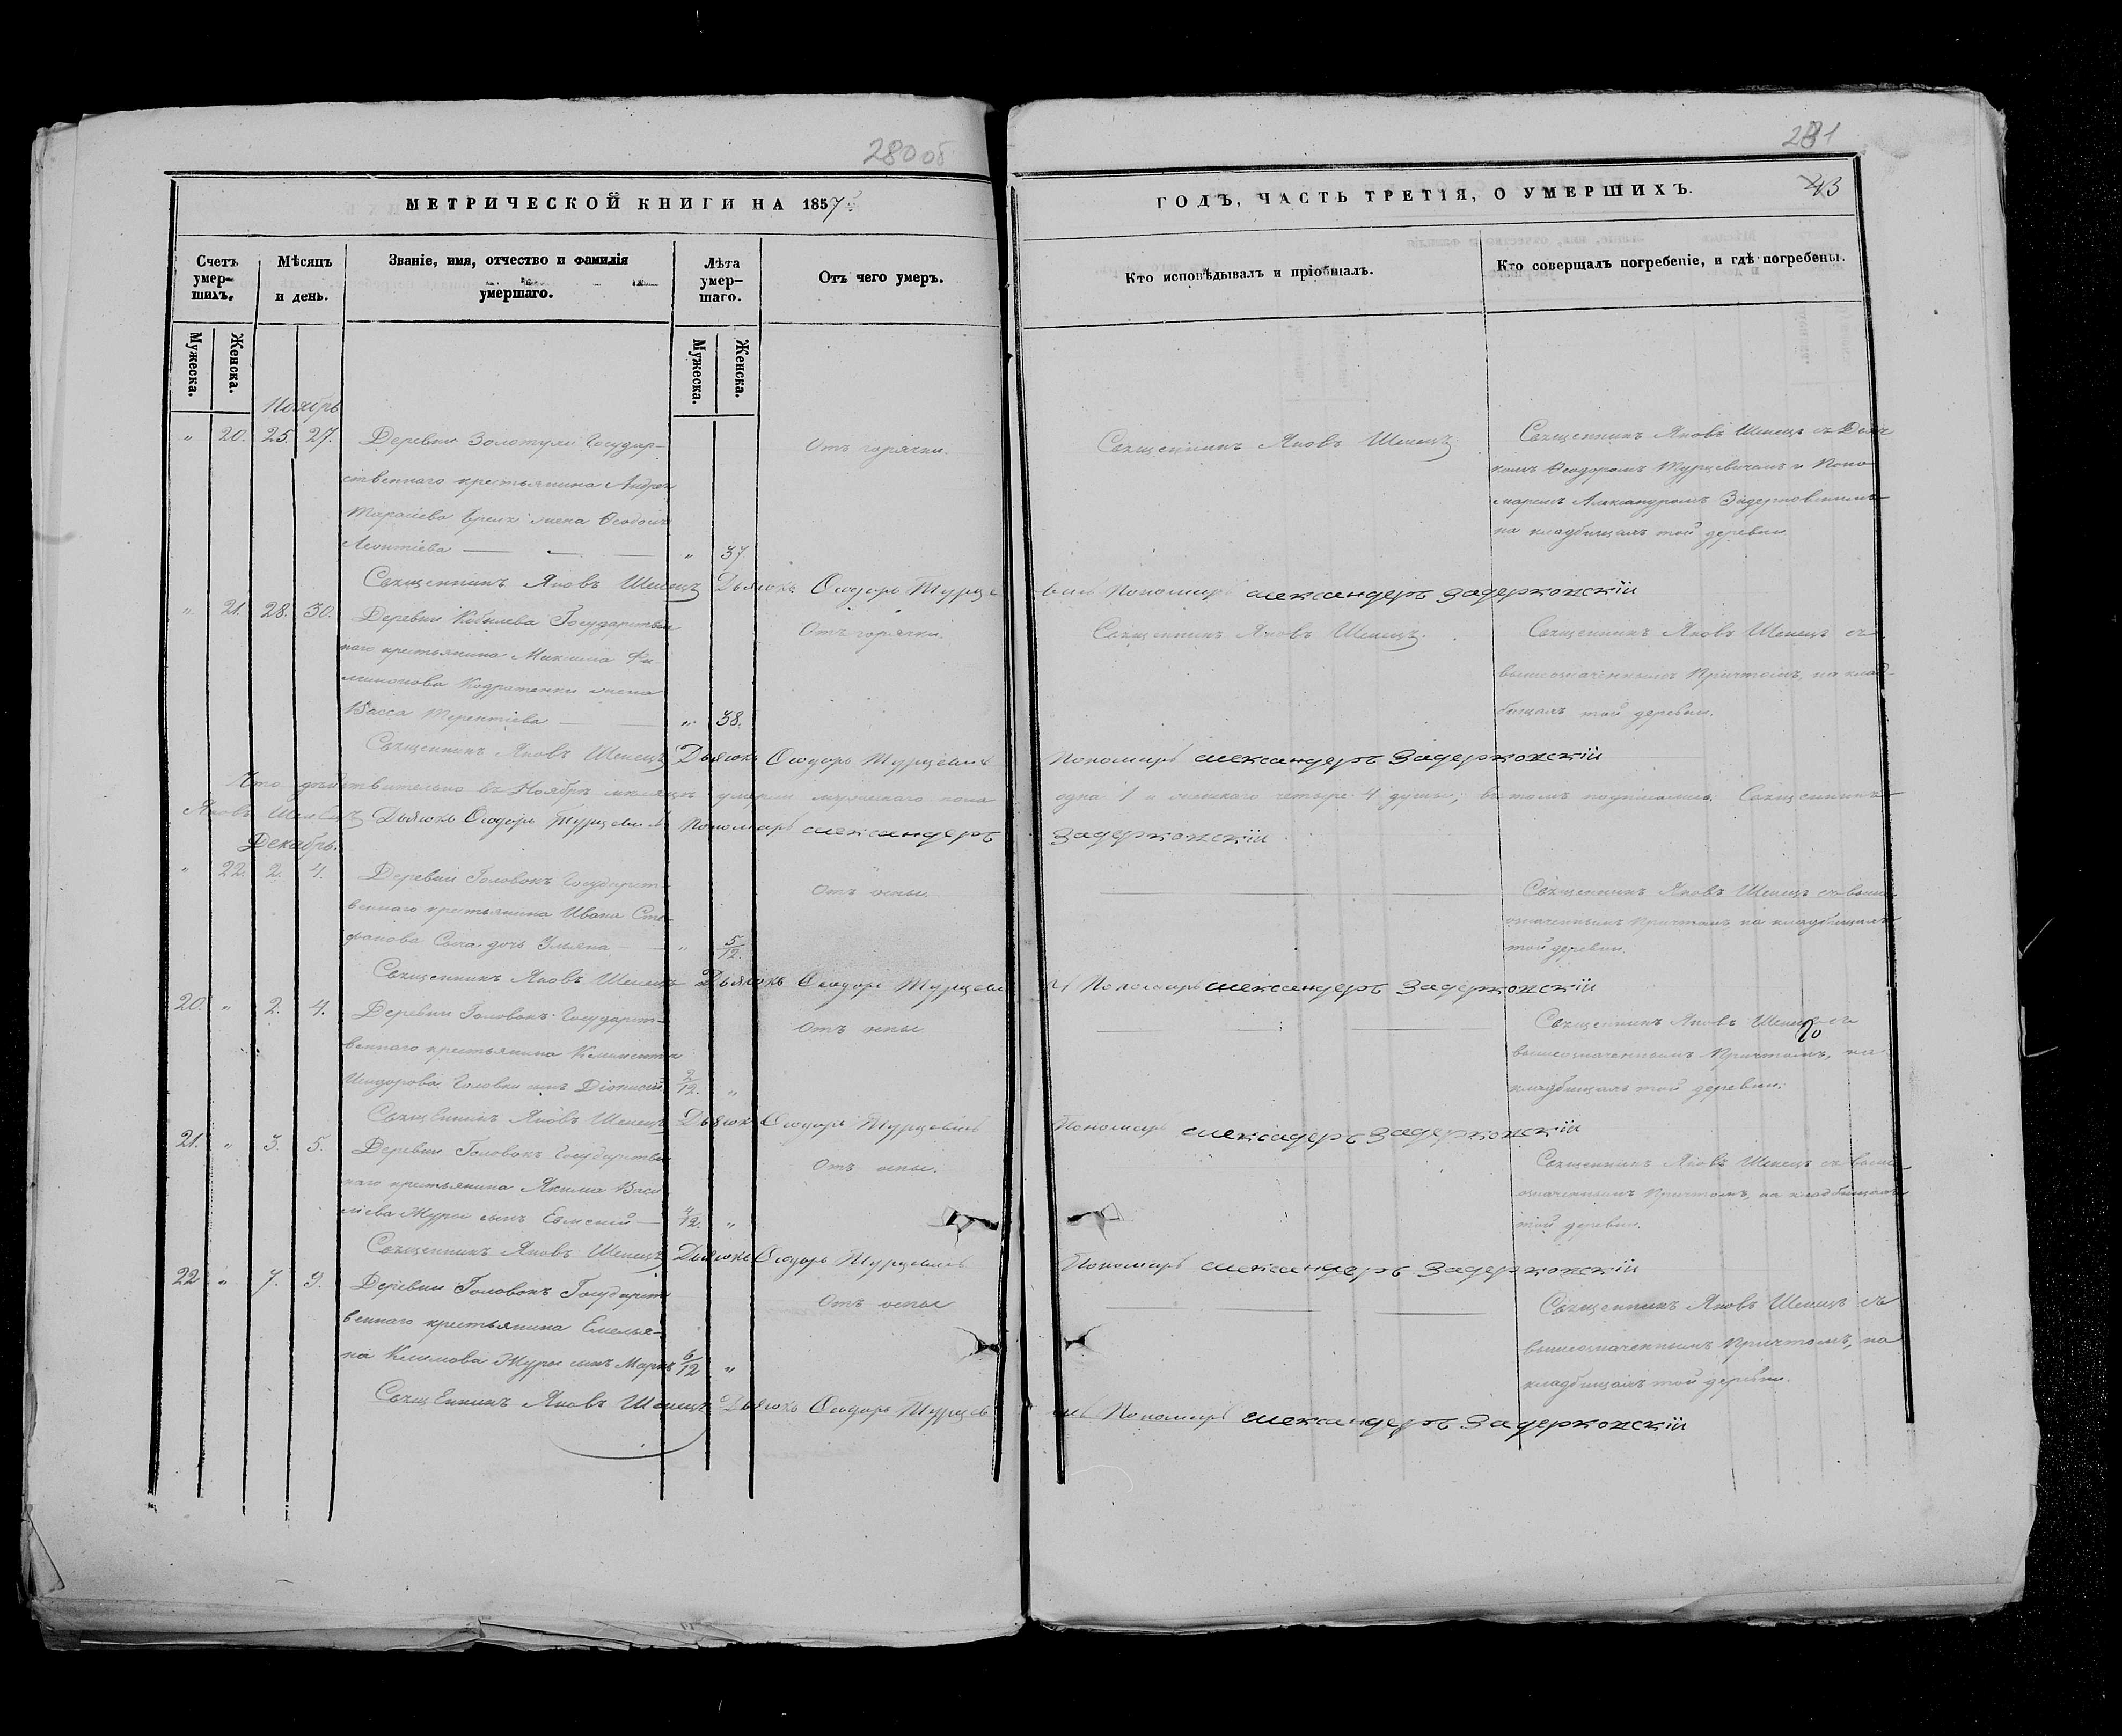 280 об
281
МЕТРИЧЕСКОЙ КНИГИ НА 1857
ГОДЪ, ЧАСТЬ ТРЕТІЯ, О УМЕРШИХЪ.
43
Счетъ умер-шихъ.
Мѣсяцъ и день.
Званіе, имя, отчество и фамилія умершаго.
Лѣта умер-шаго.
Отъ чего умеръ.
Кто исповѣдывалъ и пріобщалъ.
Кто совершалъ погребеніе, и гдѣ погребены.
Мужеска.
Женска.
Мужеска.
Женска.
Ноябрь
" 20. 25. 27. Деревни Государ-
ственнаго крестьянина Андрея
жена
Леонтіева — " 37
Отъ горячки.
Священникъ Яковъ Шепецъ
Священникъ Яковъ Шепецъ съ Дьяч
комъ Ѳеодоромъ Турцевичемъ и Поно
маремъ Александромъ Задерковскимъ
на кладбищахъ той деревни
Священникъ Яковъ Шепецъ Дьячокъ Ѳеодоръ Турцевичь Пономарь Александеръ Задерковскій
" 21. 28. 30. Деревни Государствен
наго крестьянина Максима Фи
лимонова жена
Васса Терентіева — " 38.
Отъ горячки.
Священникъ Яковъ Шепецъ.
Священникъ Яковъ Шепецъ съ
вышеозначеннымъ Причтомъ, на клад-
бищахъ той деревни.
Священникъ Яковъ Шепецъ Дьячокъ Ѳеодоръ Турцевичь Пономарь Александеръ Задерковскій
Что дѣйствительно въ Ноябрѣ мѣсяцѣ умерли мужескаго пола одна 1 и женскаго четыре 4 души; въ томъ подписались: Священникъ
Яковъ Шепецъ Дьячокъ Ѳеодоръ Турцевичь Пономарь Александеръ Задерковскій
Декабрь.
" 22. 2. 4. Деревни Головокъ Государст-
веннаго крестьянина Ивана Сте-
фанова Сыча дочь Ульяна — " 5/12.
Отъ оспы.
Священникъ Яковъ Шепецъ съ выше
означеннымъ Причтомъ на кладбищахъ
той деревни.
Священникъ Яковъ Шепецъ Дьячокъ Ѳеодоръ Турцевичь Пономарь Александеръ Задерковскій
20. " 2. 4. Деревни Головокъ Государст-
веннаго крестьянина Климента
Исидорова Головки сынъ Діонисій 2/12. "
Отъ оспы
Священникъ Яковъ Шепецъ съ
вышеозначеннымъ Причтомъ, на
кладбищахъ той деревни.
Священникъ Яковъ Шепецъ Дьячокъ Ѳеодоръ Турцевичь Пономарь Алексадеръ Задерковскій
21. " 3. 5. Деревни Головокъ Государствен
наго крестьянина Якима Васи
ліева Журы сынъ — 4/12. "
Отъ оспы.
Священникъ Яковъ Шепецъ съ выше
означеннымъ Причтомъ, на кладбищахъ
той деревни.
Священникъ Яковъ Шепецъ Дьячокъ Ѳеодоръ Турцевичь Пономарь Александеръ Задерковскій
22 " 7. 9. Деревни Головокъ Государст
веннаго крестьянина Емелья-
на Климова Журы сынъ Марко 6/12 "
Отъ оспы
Священникъ Яковъ Шепецъ съ
вышеозначеннымъ Причтомъ, на
кладбищахъ той деревни.
Священникъ Яковъ Шепецъ Дьячокъ Ѳеодоръ Турцевичь Пономарь Александеръ Задерковскій